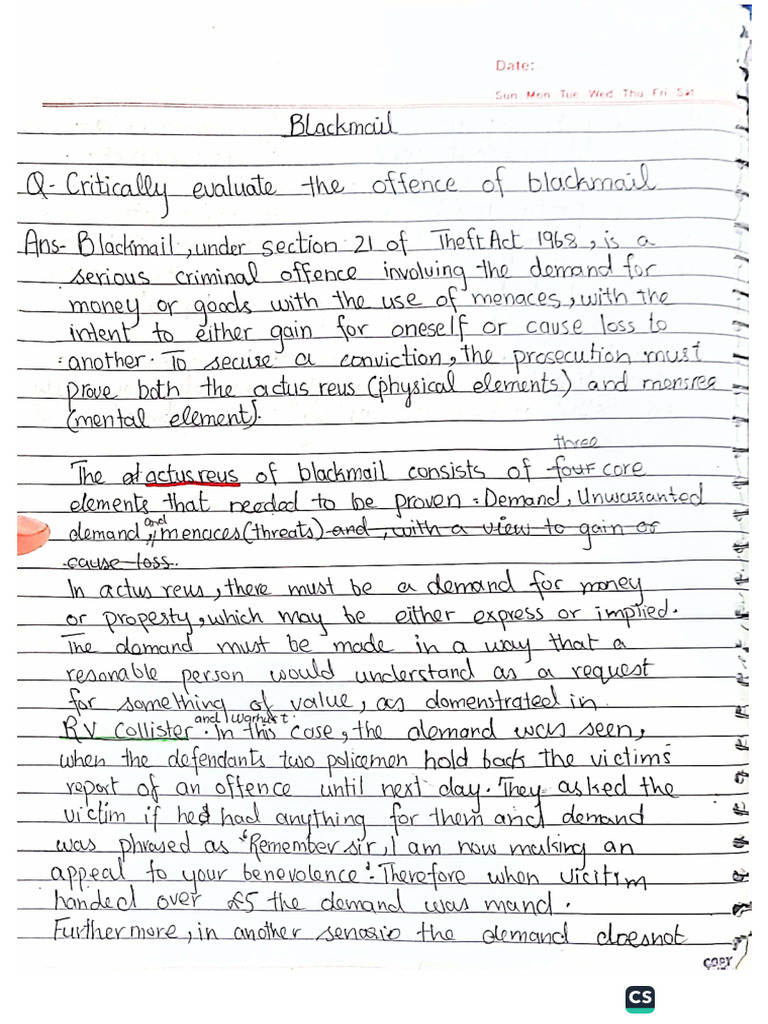 Date:
Sun Mon Tue Wed Thu Fri Sat
Blackmail
Q- Critically evaluate the offence of blackmail
Ans- Blackmail, under section 21 of Theft Act 1968, is a
serious criminal offence involving the demand for
money or goods with the use of menaces, with the
intent to either gain for oneself or cause loss to
another. To secure a conviction, the prosecution must
prove both the actus reus (physical elements) and mensrea
(mental element).
three
The at actus reus of blackmail consists of four core
elements that needed to be proven: Demand, Unwarranted
demand, and menaces (threats) and, with a view to gain or
cause loss.
In actus reus, there must be a demand for money
or property, which may be either express or implied.
The demand must be made in a way that a
resonable person would understand as a request
for something of value, as domenstrated in
RV Collister and Warhust. In this case, the demand was seen,
when the defendants two policemen hold back the victims
report of an offence until next day. They asked the
victim if he had anything for them and demand
was phrased as "Remember sir, I am now making an
appeal to your benevolence". Therefore when vicitim
handed over £5 the demand was mand.
Furthermore, in another senario the demand doesnot
copy
CS